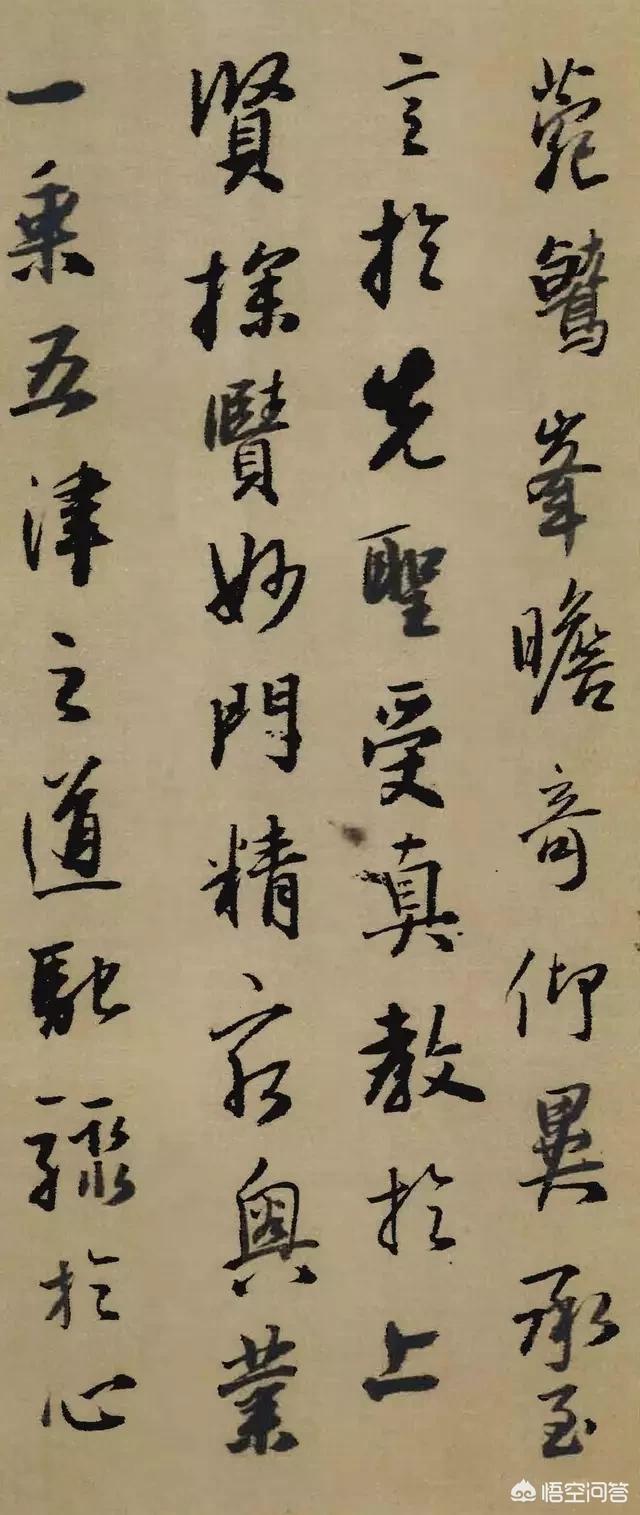 菀鷲峯瞻奇仰異承至
言於先聖受真教於上
賢探賾妙門精窮奧業
一乘五津之道馳驟於心
悟空问答